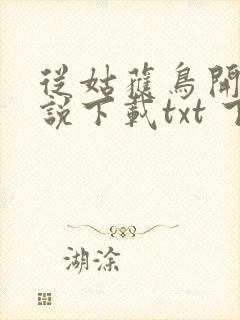 從姑獲鳥開
說下載txt 下
湖涂